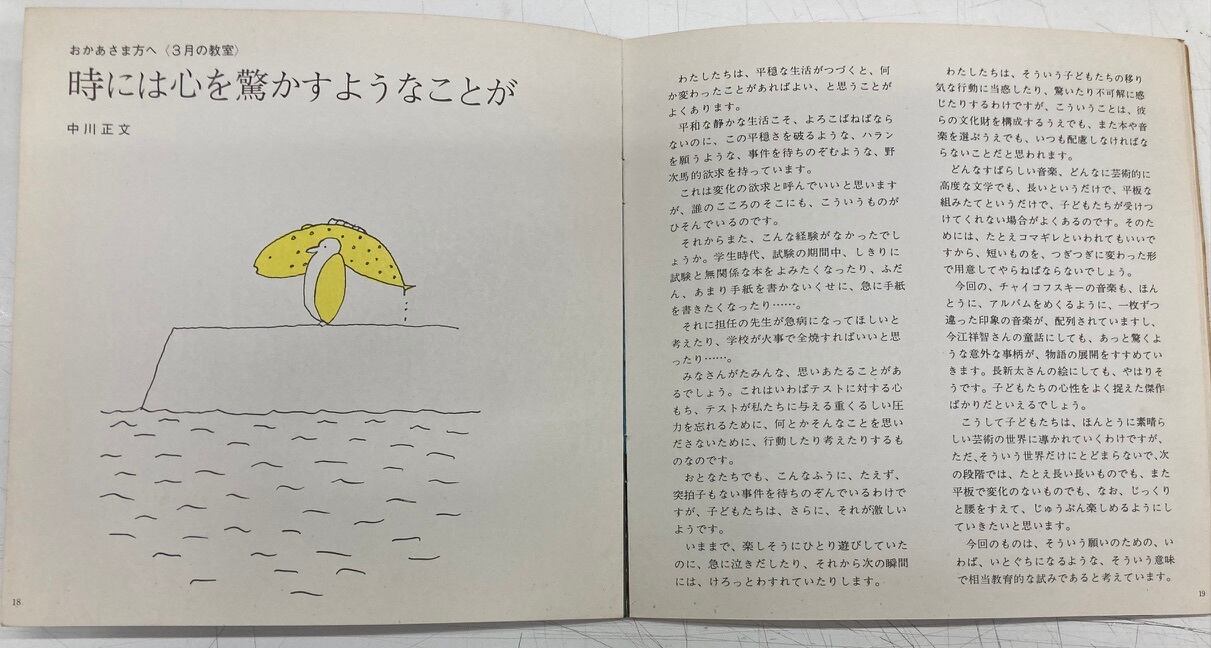 おかあさま方へ〈3月の教室〉
時には心を驚かすようなことが
中川正文
18
わたしたちは、平穏な生活がつづくと、何
か変わったことがあればよい、と思うことが
よくあります。
平和な静かな生活こそ、よろこばねばなら
ないのに、この平穏さを破るような、ハラン
を願うような、事件を待ちのぞむような、野
次馬的欲求を持っています。
これは変化の欲求と呼んでいいと思います
が、誰のこころのそこにも、こういうものが
ひそんでいるのです。
それからまた、こんな経験がなかったでし
ょうか。学生時代、試験の期間中、しきりに
試験と無関係な本をよみたくなったり、ふだ
ん、あまり手紙を書かないくせに、急に手紙
を書きたくなったり……。
それに担任の先生が急病になってほしいと
考えたり、学校が火事で全焼すればいいと思
ったり……。
みなさんがたみんな、思いあたることがあ
るでしょう。これはいわばテストに対する心
もち、テストが私たちに与える重くるしい圧
力を忘れるために、何とかそんなことを思い
ださないために、行動したり考えたりするも
のなのです。
おとなたちでも、こんなふうに、たえず、
突拍子もない事件を待ちのぞんでいるわけで
すが、子どもたちは、さらに、それが激しい
ようです。
いままで、楽しそうにひとり遊びしていた
のに、急に泣きだしたり、それから次の瞬間
には、けろっとわすれていたりします。
わたしたちは、そういう子どもたちの移り
気な行動に当惑したり、驚いたり不可解に感
じたりするわけですが、こういうことは、彼
らの文化財を構成するうえでも、また本や音
楽を選ぶうえでも、いつも配慮しなければな
らないことだと思われます。
どんなすばらしい音楽、どんなに芸術的に
高度な文学でも、長いというだけで、平板な
組みたてというだけで、子どもたちが受けつ
けてくれない場合がよくあるのです。そのた
めには、たとえコマギレといわれてもいいで
すから、短いものを、つぎつぎに変わった形
で用意してやらねばならないでしょう。
今回の、チャイコフスキーの音楽も、ほん
とうに、アルバムをめくるように、一枚ずつ
違った印象の音楽が、配列されていますし、
今江祥智さんの童話にしても、あっと驚くよ
うな意外な事柄が、物語の展開をすすめてい
きます。長新太さんの絵にしても、やはりそ
うです。子どもたちの心性をよく捉えた傑作
ばかりだといえるでしょう。
こうして子どもたちは、ほんとうに素晴ら
しい芸術の世界に導かれていくわけですが、
ただ、そういう世界だけにとどまらないで、次
の段階では、たとえ長い長いものでも、また
平板で変化のないものでも、なお、じっくり
と腰をすえて、じゅうぶん楽しめるようにし
ていきたいと思います。
今回のものは、そういう願いのための、い
わば、いとぐちになるような、そういう意味
で相当教育的な試みであると考えています。
19